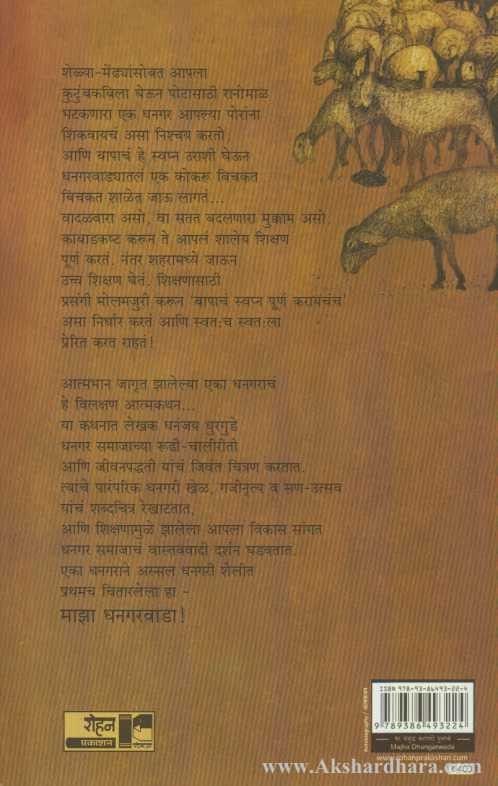 शेळ्या-मेंढ्यांसोबत आपला
कुटुंबकबिला घेऊन पोटासाठी रानोमाळ
भटकणारा एक धनगर आपल्या पोरांना
शिकवायचं असा निश्चय करतो,
आणि बापाचं हे स्वप्न उराशी घेऊन
धनगरवाड्यातलं एक कोकरू बिचकत
बिचकत शाळेत जाऊ लागतं...
वादळवारा असो, वा सतत बदलणारा मुक्काम असो.
काबाडकष्ट करून ते आपलं शालेय शिक्षण
पूर्ण करतं. नंतर शहरामध्ये जाऊन
उच्च शिक्षण घेतं. शिक्षणासाठी
प्रसंगी मोलमजुरी करून 'बापाचं स्वप्न पूर्ण करायचंच'
असा निर्धार करतं आणि स्वतःच स्वतःला
प्रेरित करत राहतं!
आत्मभान जागृत झालेल्या एका धनगराचं
हे विलक्षण आत्मकथन...
या कथनात लेखक धनंजय धुरगुडे
धनगर समाजाच्या रूढी-चालीरीती
आणि जीवनपद्धती यांचं जिवंत चित्रण करतात.
त्यांचे पारंपरिक धनगरी खेळ, गजीनृत्य व सण-उत्सव
यांचं शब्दचित्र रेखाटतात,
आणि शिक्षणामुळे झालेला आपला विकास सांगत
धनगर समाजाचं वास्तववादी दर्शन घडवतात.
एका धनगराने अस्सल धनगरी शैलीत
प्रथमच चितारलेला हा -
माझा धनगरवाडा!
रोहन
प्रकाशन
ISBN 978-93-86493-22-4
9 789386 493224
Majha Dhangarwada
www.rohanprakashan.com
www.Akshardhara.com